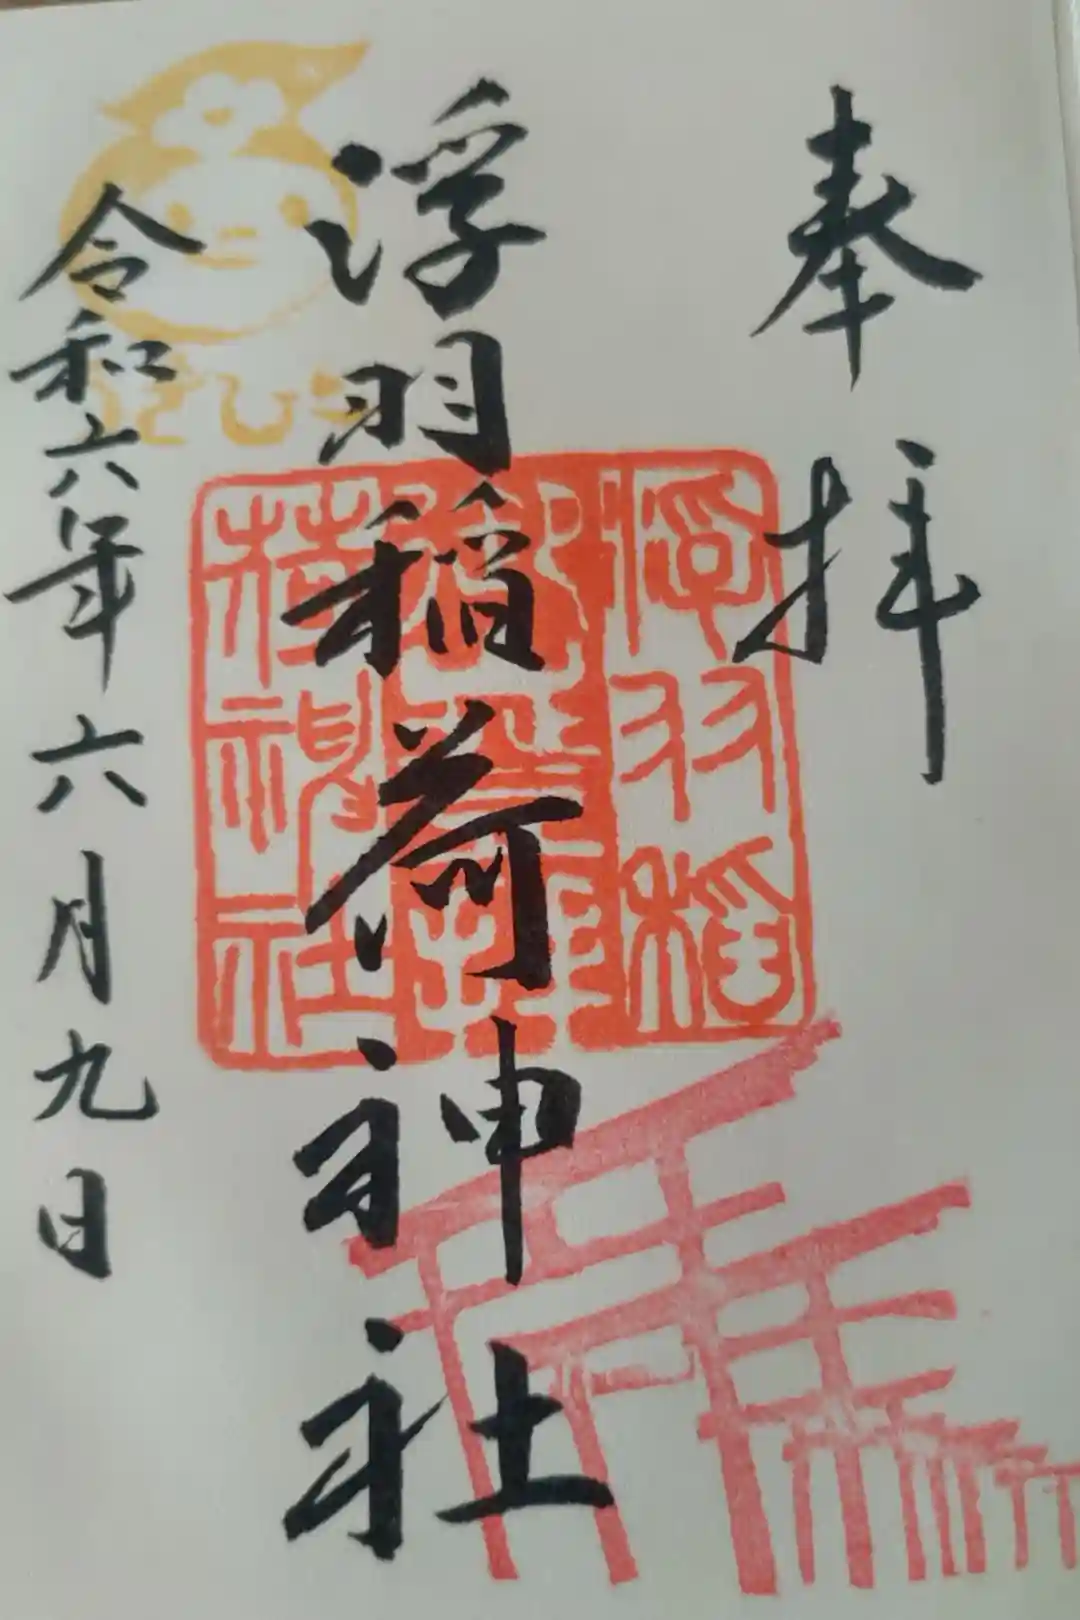 奉拝
浮羽稲荷神社
令和六年六月九日
浮羽稲
荷神社